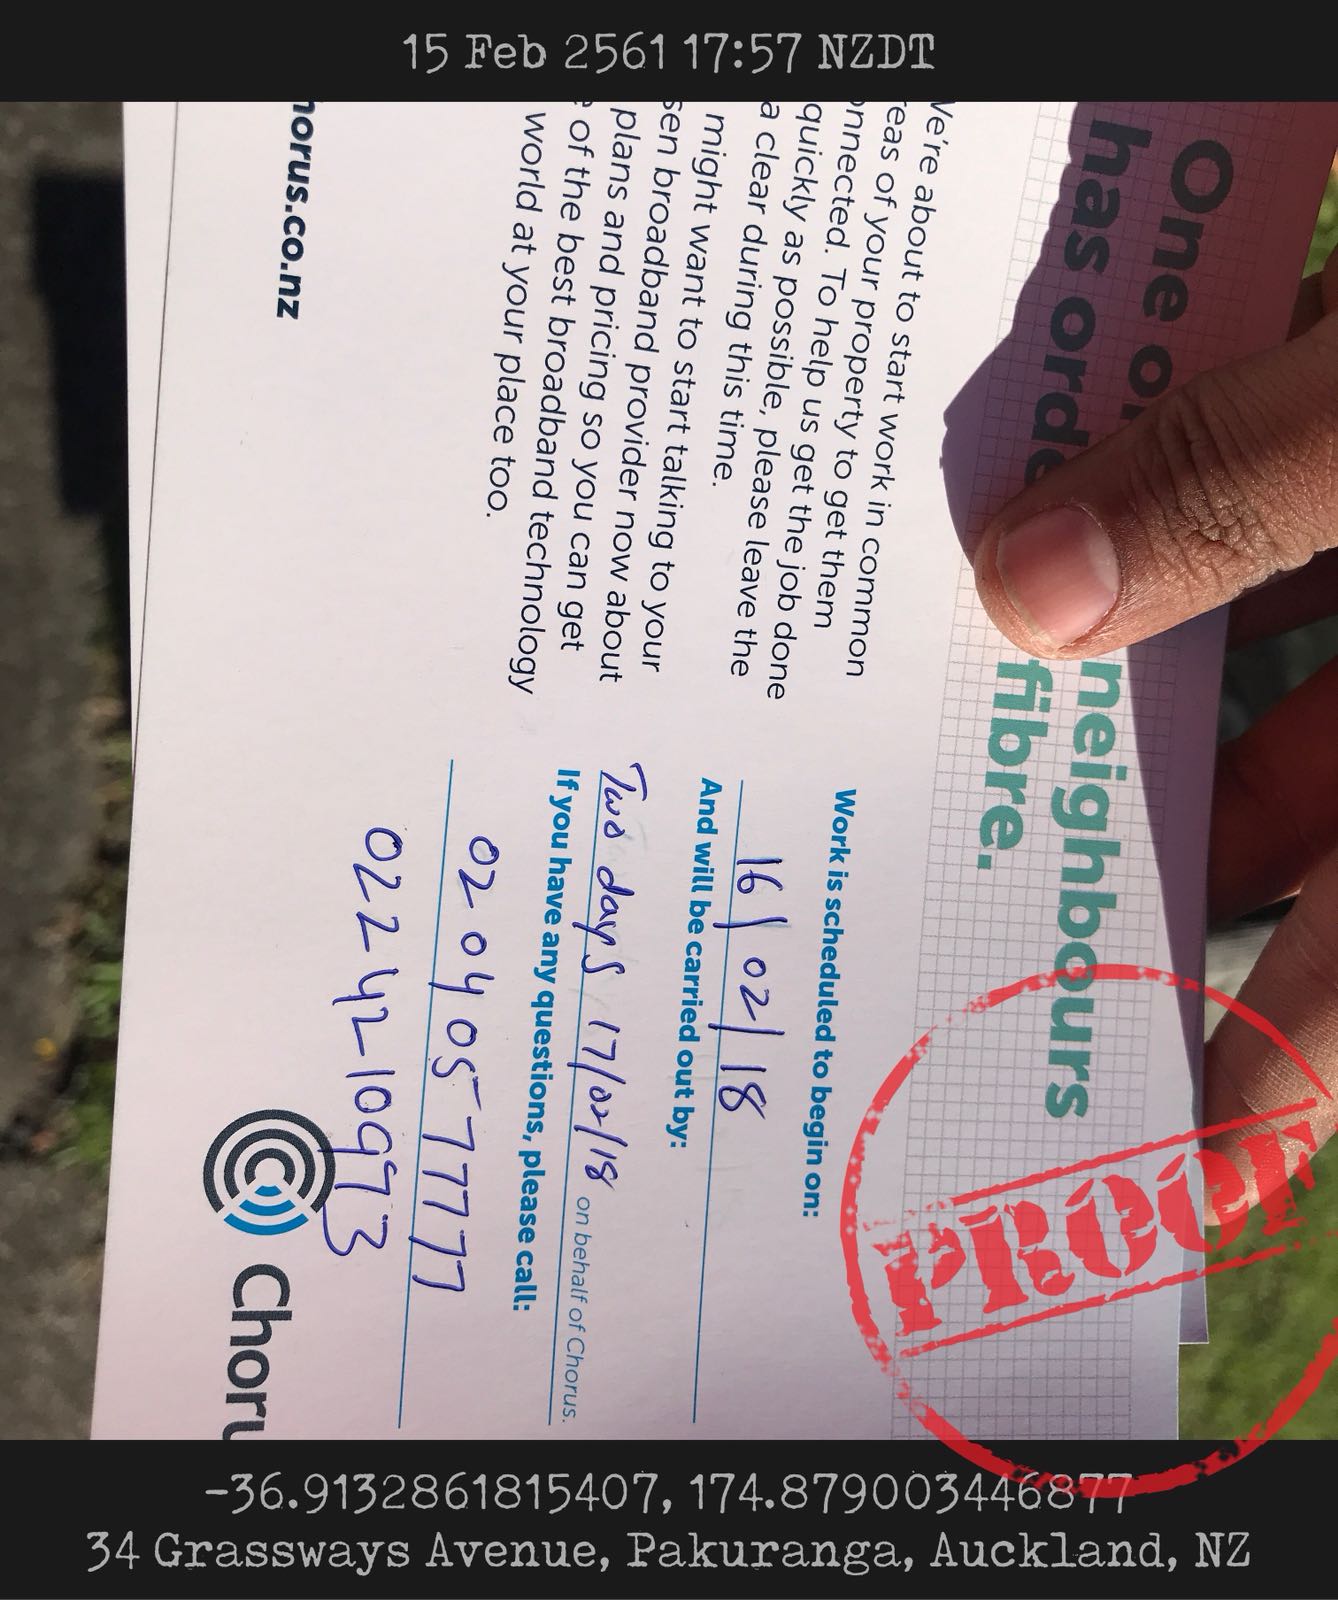 15 Feb 2561 17:57 NZDT
One o
has orde
neighbours
fibre.
We're about to start work in common
reas of your property to get them
onnected. To help us get the job done
quickly as possible, please leave the
a clear during this time.
might want to start talking to your
sen broadband provider now about
plans and pricing so you can get
e of the best broadband technology
world at your place too.
horus.co.nz
Work is scheduled to begin on:
16/02/18
And will be carried out by:
Two days 17/02/18 on behalf of Chorus.
If you have any questions, please call:
02 04 05 77777
022 42 10973
Choru
PROOF
-36.9132861815407, 174.879003446877
34 Grassways Avenue, Pakuranga, Auckland, NZ